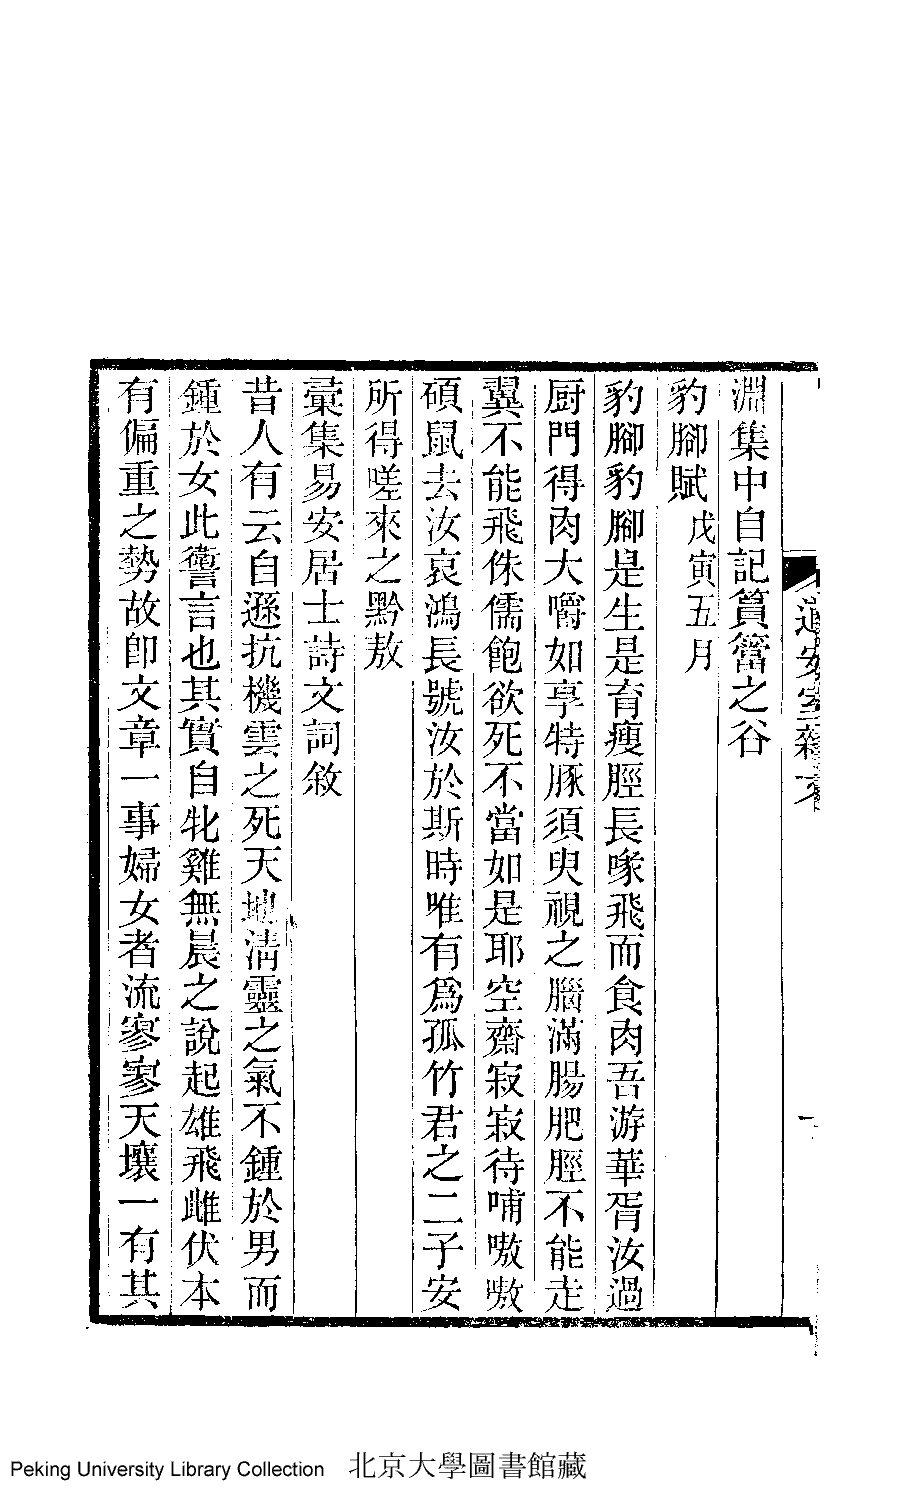 淵集中自記篔簹之谷
豹腳賦 戊寅五月
豹腳豹腳是生是育瘦脛長喙飛而食肉吾游華胥汝過
厨門得肉大嚼如享特豚須臾視之腦滿腸肥脛不能走
翼不能飛侏儒飽欲死不當如是耶空齋寂寂待哺嗷嗷
碩鼠去汝哀鴻長號汝於斯時唯有爲孤竹君之二子安
所得嗟來之黔敖
彙集易安居士詩文詞敘
昔人有云自遜抗機雲之死天地淸靈之氣不鍾於男而
鍾於女此讏言也其實自牝雞無晨之說起雄飛雌伏本
有偏重之勢故卽文章一事婦女者流寥寥天壤一有其
Peking University Library Collection 北京大學圖書館藏